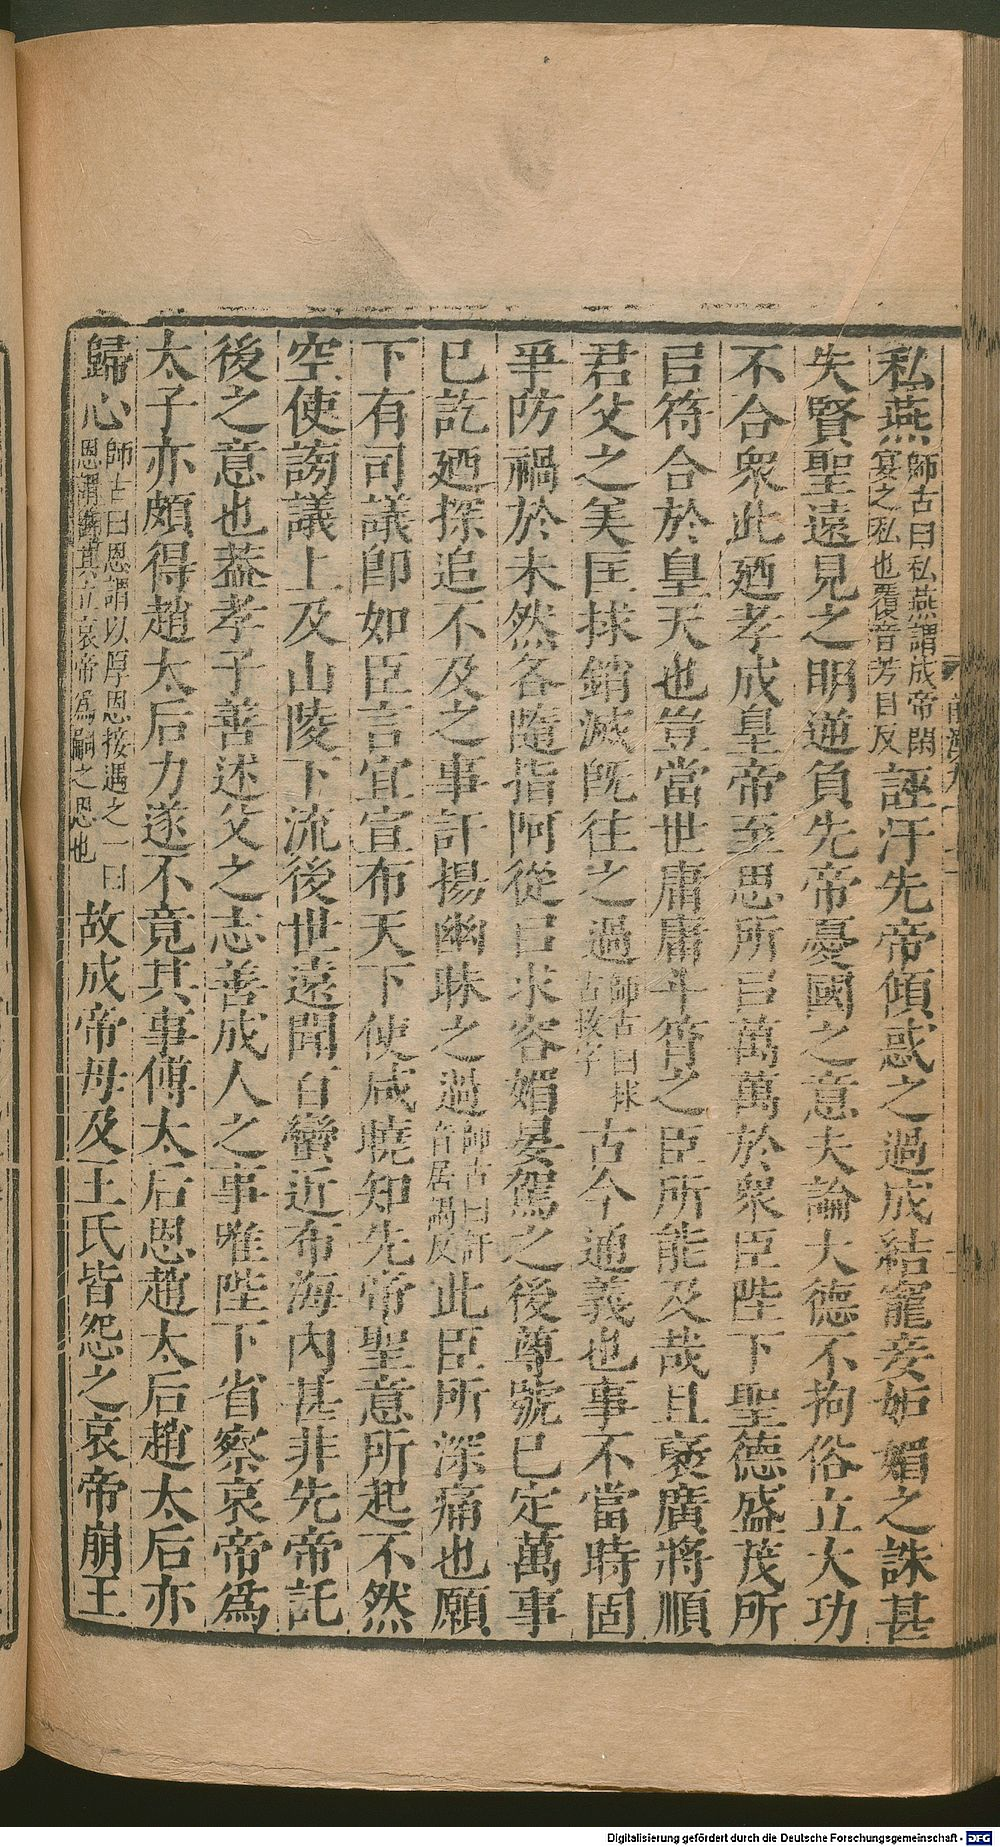 私燕師古曰私燕謂成帝閑宴之私也覆音芳目反誣汙先帝傾惑之過成結寵妾妬媚之誅甚
失賢聖遠見之明逆負先帝憂國之意夫論大德不拘俗立大功
不合衆此廼孝成皇帝至思所㠯萬萬於衆臣陛下聖德盛茂所
㠯符合於皇天也豈當世庸庸斗筲之臣所能及哉且襃廣將順
君父之美匡捄銷滅旣往之過師古曰捄古救字古今通義也事不當時固
爭防禍於未然各隨指阿從㠯求容媚晏駕之後尊號已定萬事
已訖廼探追不及之事訐揚幽昧之過師古曰訐音居謁反此臣所深痛也願
下有司議卽如臣言宜宣布天下使咸曉知先帝聖意所起不然
空使謗議上及山陵下流後世遠聞百蠻近布海內甚非先帝託
後之意也葢孝子善述父之志善成人之事唯陛下省察哀帝爲
太子亦頗得趙太后力遂不竟其事傅太后恩趙太后趙太后亦
歸心師古曰恩謂以厚恩接遇之一曰恩謂銜其立哀帝爲嗣之恩也故成帝母及王氏皆怨之哀帝崩王
Digitalisierung gefördert durch die Deutsche Forschungsgemeinschaft - DFG